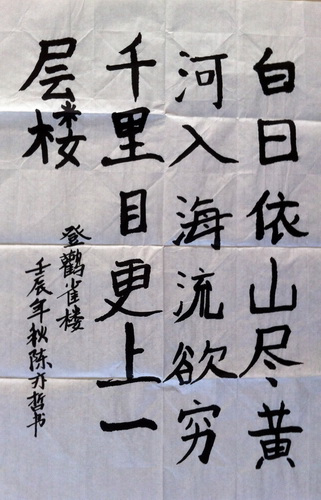 白日依山尽黄
河入海流欲穷
千里目更上一
层楼
登鹳雀楼
壬辰年秋陈亦哲书